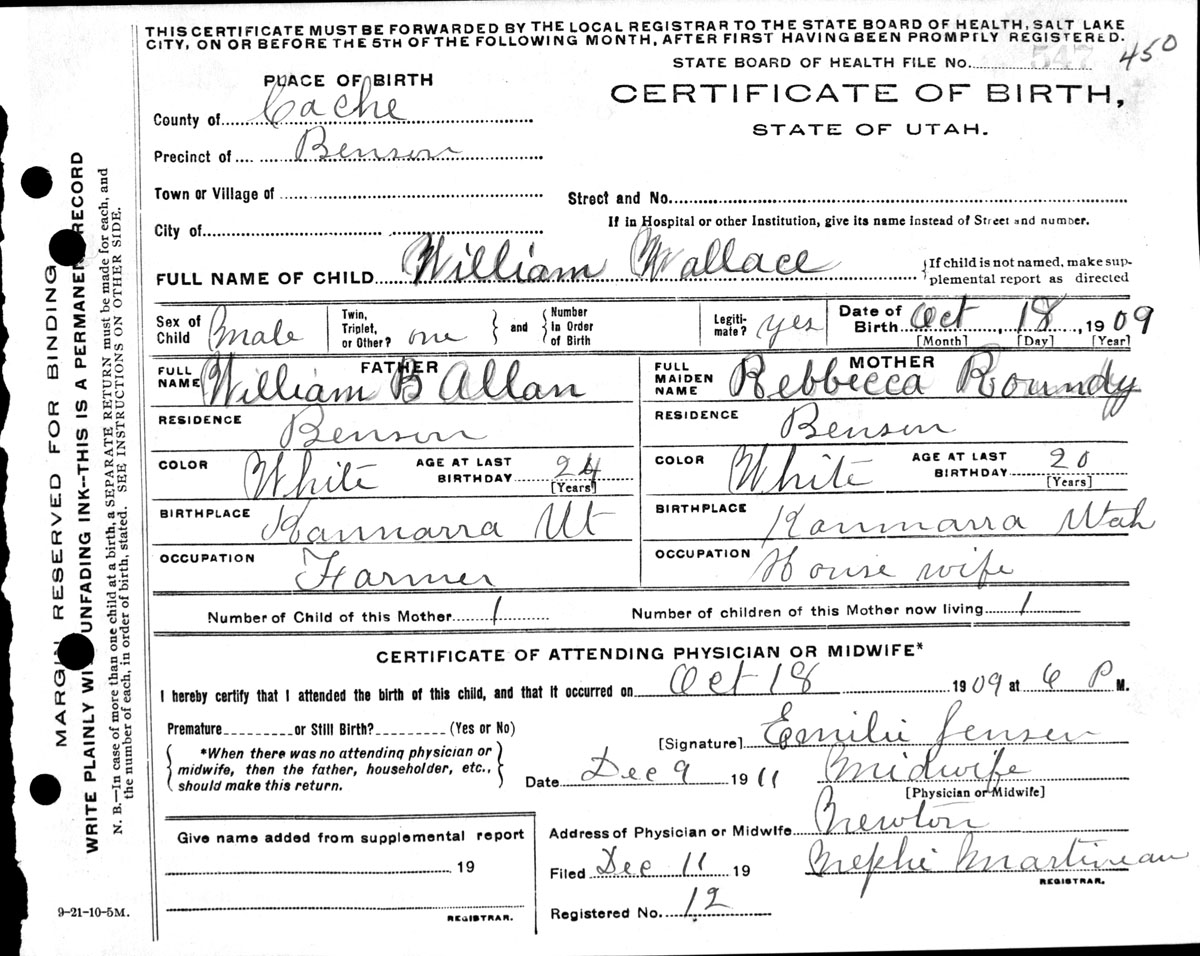 THIS CERTIFICATE MUST BE FORWARDED BY THE LOCAL REGISTRAR TO THE STATE BOARD OF HEALTH, SALT LAKE
CITY, ON OR BEFORE THE 5TH OF THE FOLLOWING MONTH, AFTER FIRST HAVING BEEN PROMPTLY REGISTERED.
450
STATE BOARD OF HEALTH FILE No. 547
PLACE OF BIRTH
CERTIFICATE OF BIRTH,
STATE OF UTAH.
County of Cache
Precinct of Benson
Town or Village of
Street and No.
If in Hospital or other Institution, give its name instead of Street and number.
City of
FULL NAME OF CHILD William Wallace {If child is not named, make sup-
plemental report as directed
Sex of Child Male Twin, Triplet, or Other? one and Number In Order of Birth Legiti-mate? yes Date of Birth Oct, 18, 1909
[Month] [Day] [Year]
FATHER MOTHER
FULL NAME William B Allan FULL MAIDEN NAME Rebbecca Roundy
RESIDENCE Benson RESIDENCE Benson
COLOR White AGE AT LAST BIRTHDAY 24 [Years] COLOR White AGE AT LAST BIRTHDAY 20 [Years]
BIRTHPLACE Kannarra Ut BIRTHPLACE Kannarra Utah
OCCUPATION Farmer OCCUPATION House wife
Number of Child of this Mother 1 Number of children of this Mother now living 1
CERTIFICATE OF ATTENDING PHYSICIAN OR MIDWIFE*
I hereby certify that I attended the birth of this child, and that it occurred on Oct 18 1909 at 6 P M.
Premature or Still Birth? (Yes or No)
[Signature] Emilie Jensen
*When there was no attending physician or
midwife, then the father, householder, etc.,
should make this return.
Date Dec 9 1911 Midwife
[Physician or Midwife]
Give name added from supplemental report
19
REGISTRAR.
Address of Physician or Midwife Newton
Filed Dec 11 19 Nephi Martineau
REGISTRAR.
Registered No. 12
9-21-10-5M.
MARGIN RESERVED FOR BINDING
WRITE PLAINLY WITH UNFADING INK--THIS IS A PERMANENT RECORD
N. B.—In case of more than one child at a birth, a SEPARATE RETURN must be made for each, and
the number of each, in order of birth, stated. SEE INSTRUCTIONS ON OTHER SIDE.